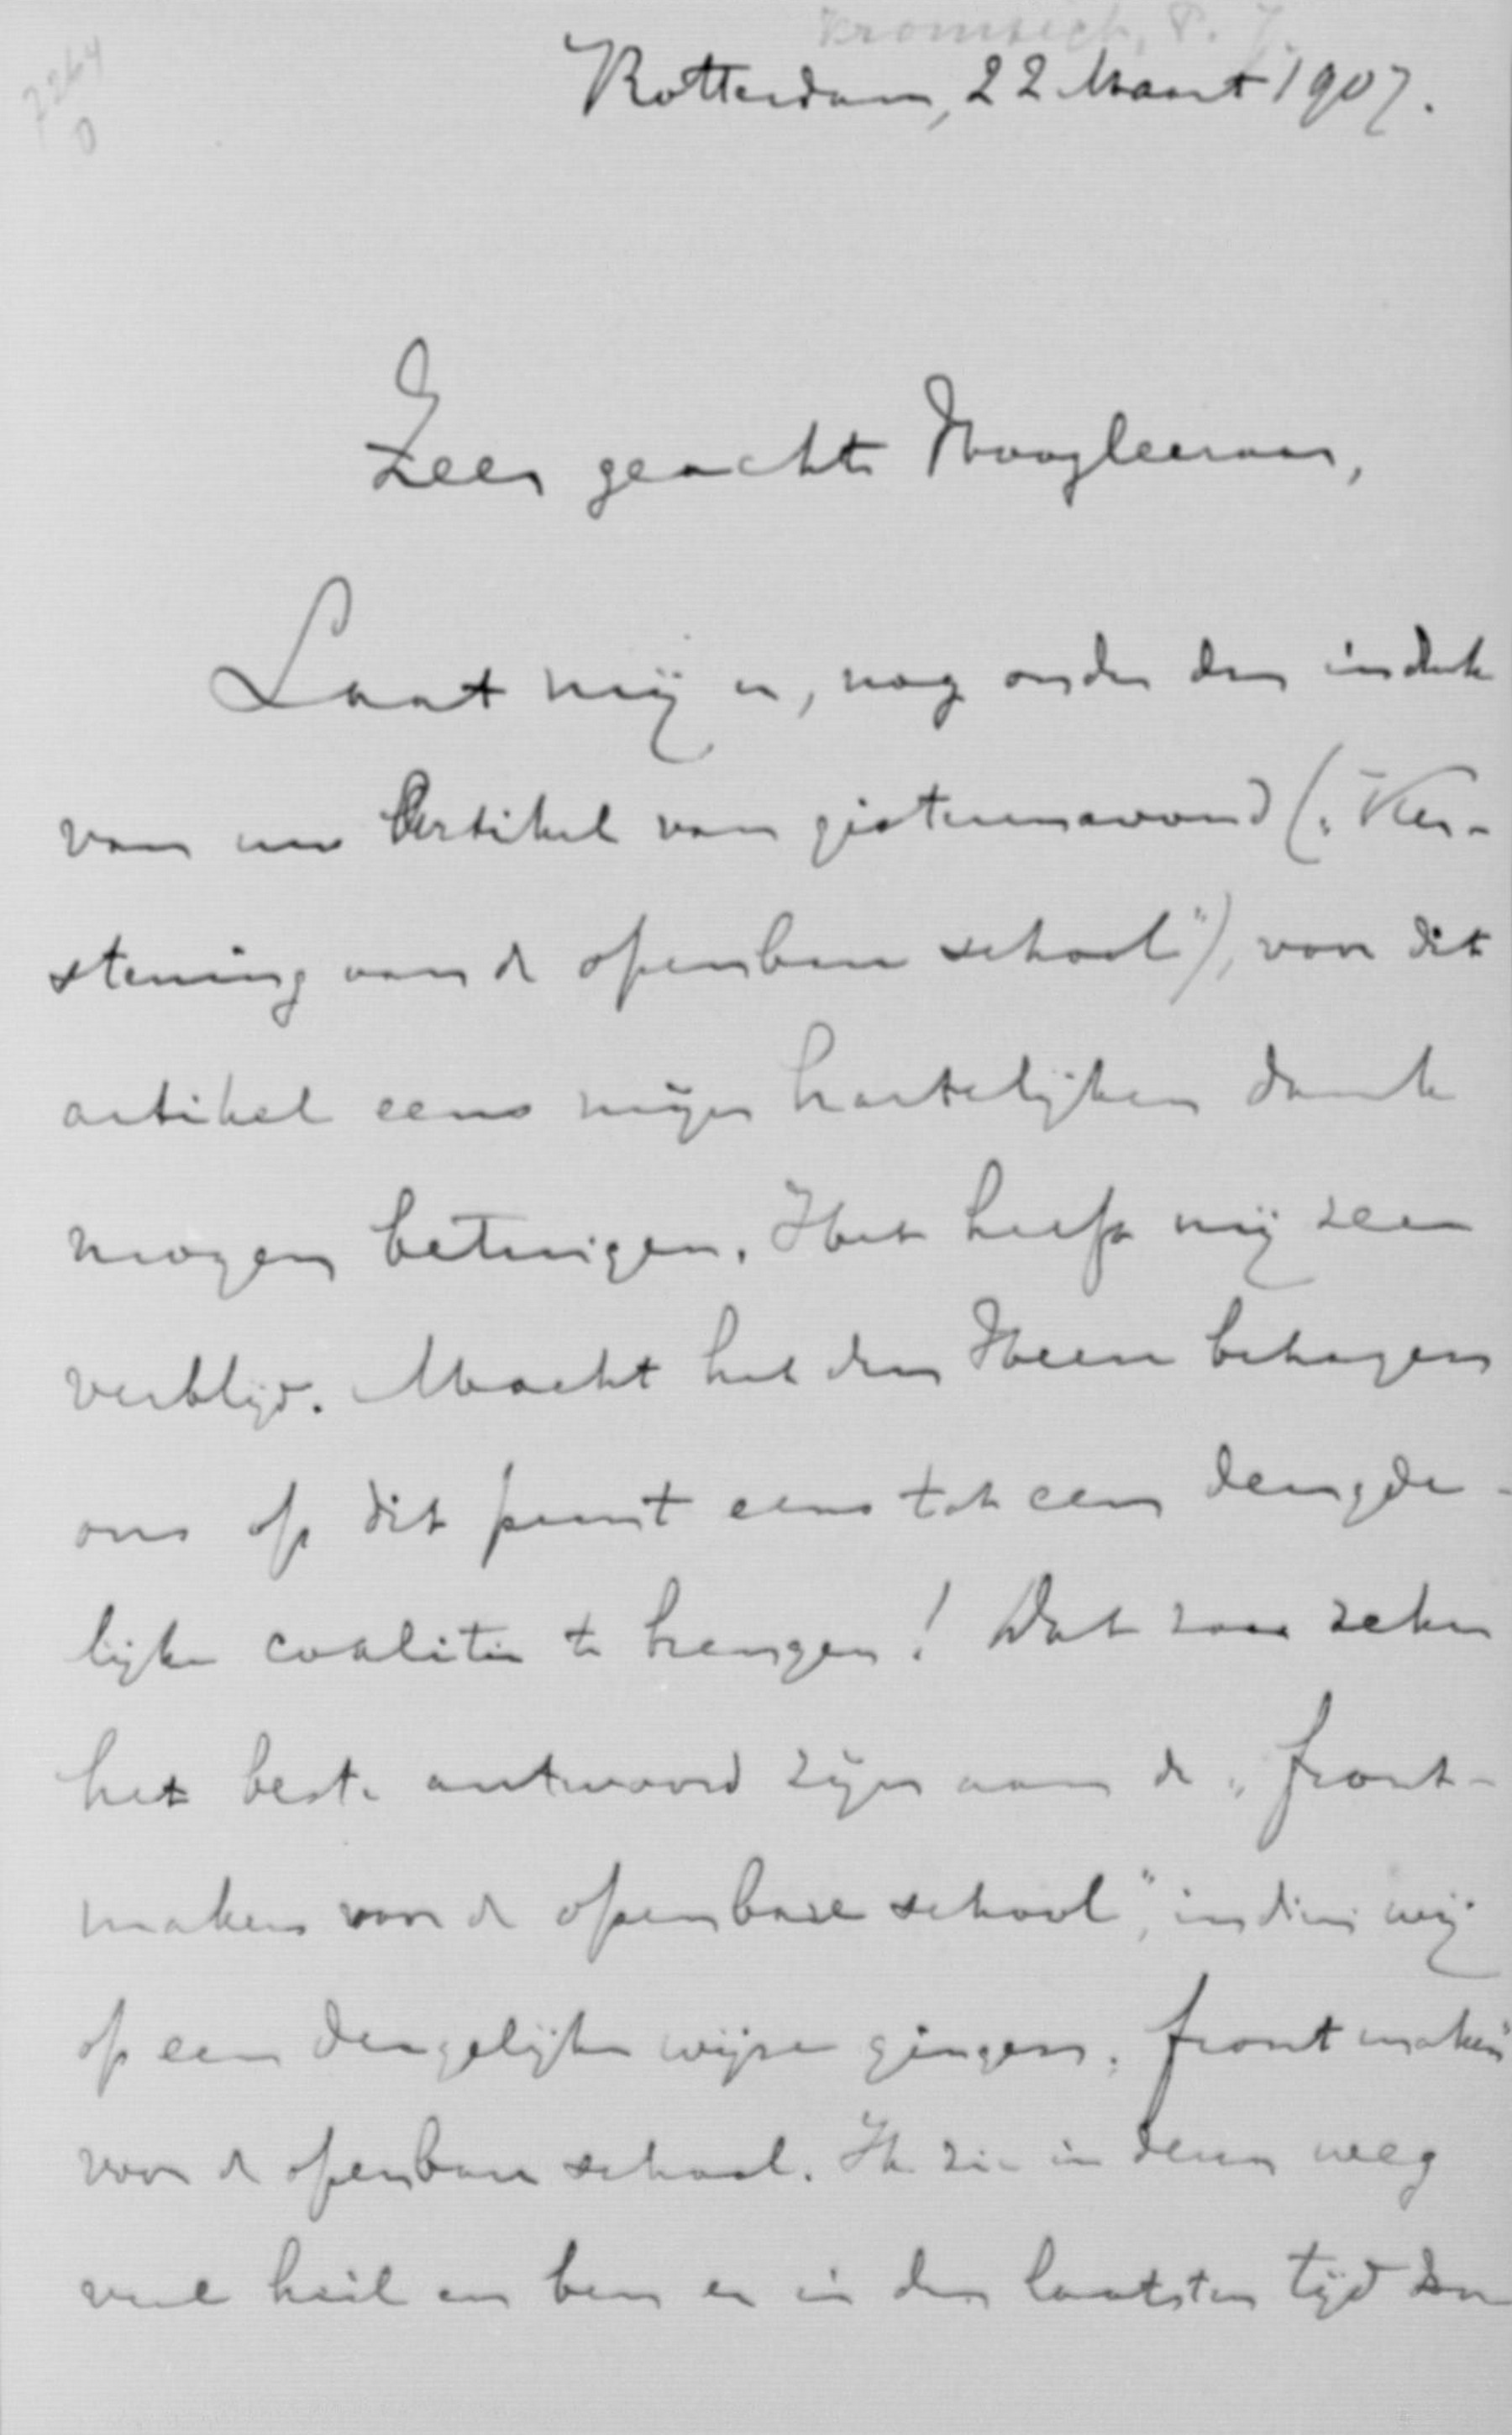 Kromsigt, P. J.
7264
0
Rotterdam, 22 Maart 1907.
Zeer geachte Hoogleeraar,
Laat mij u, nog onder den indruk
van uw Artikel van gisterenavond („Ker-
stening van de openbare school"), voor dit
artikel eens mijn hartelijken dank
mogen betuigen. Het heeft mij zeer
verblijd. Mocht het den Heere behagen
ons op dit punt eens tot een deugde-
lijke coalitie te brengen! Dat zou zeker
het beste antwoord zijn aan de „front-
makers voor de openbare school", indien wij
op een dergelijke wijze gingen „front maken"
voor de openbare school. Ik zie in dezen weg
veel heil en ben er in den laatsten tijd